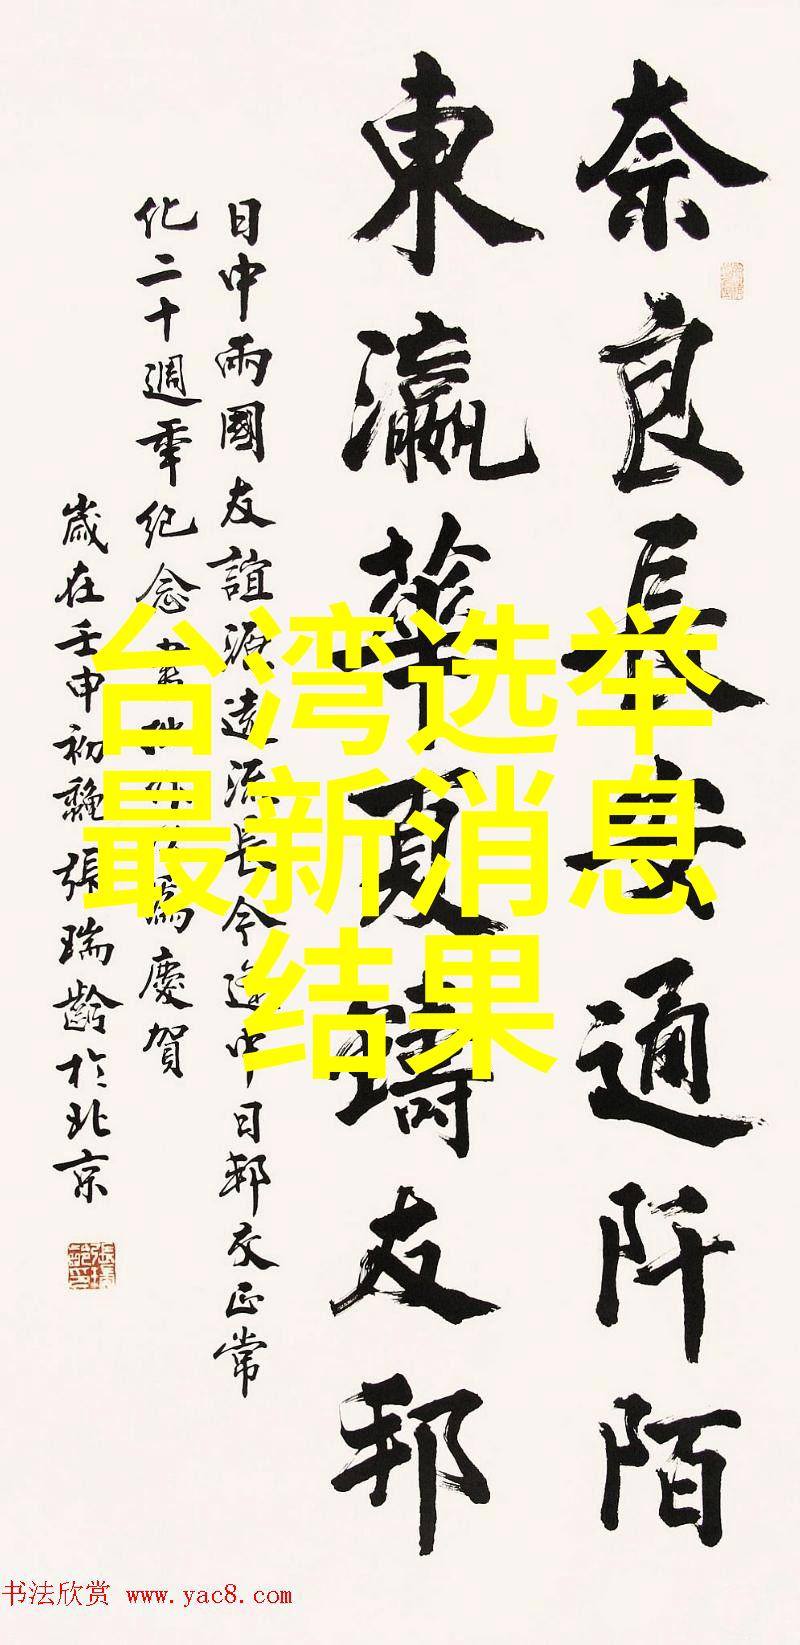 奈良長安通阡陌
東瀛華夏鑄友邦
日中兩國友誼源遠流長今逢中日邦交正常
化二十週年紀念為慶賀
歲在壬申初龝張瑞齡於北京
台湾选举
最新消息
结果
书法欣赏 www.yac8.com